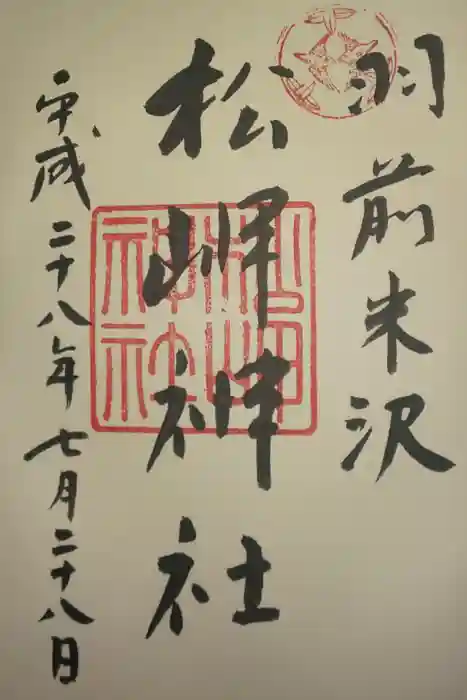 羽前米沢
松岬神社
平成二十八年七月二十八日